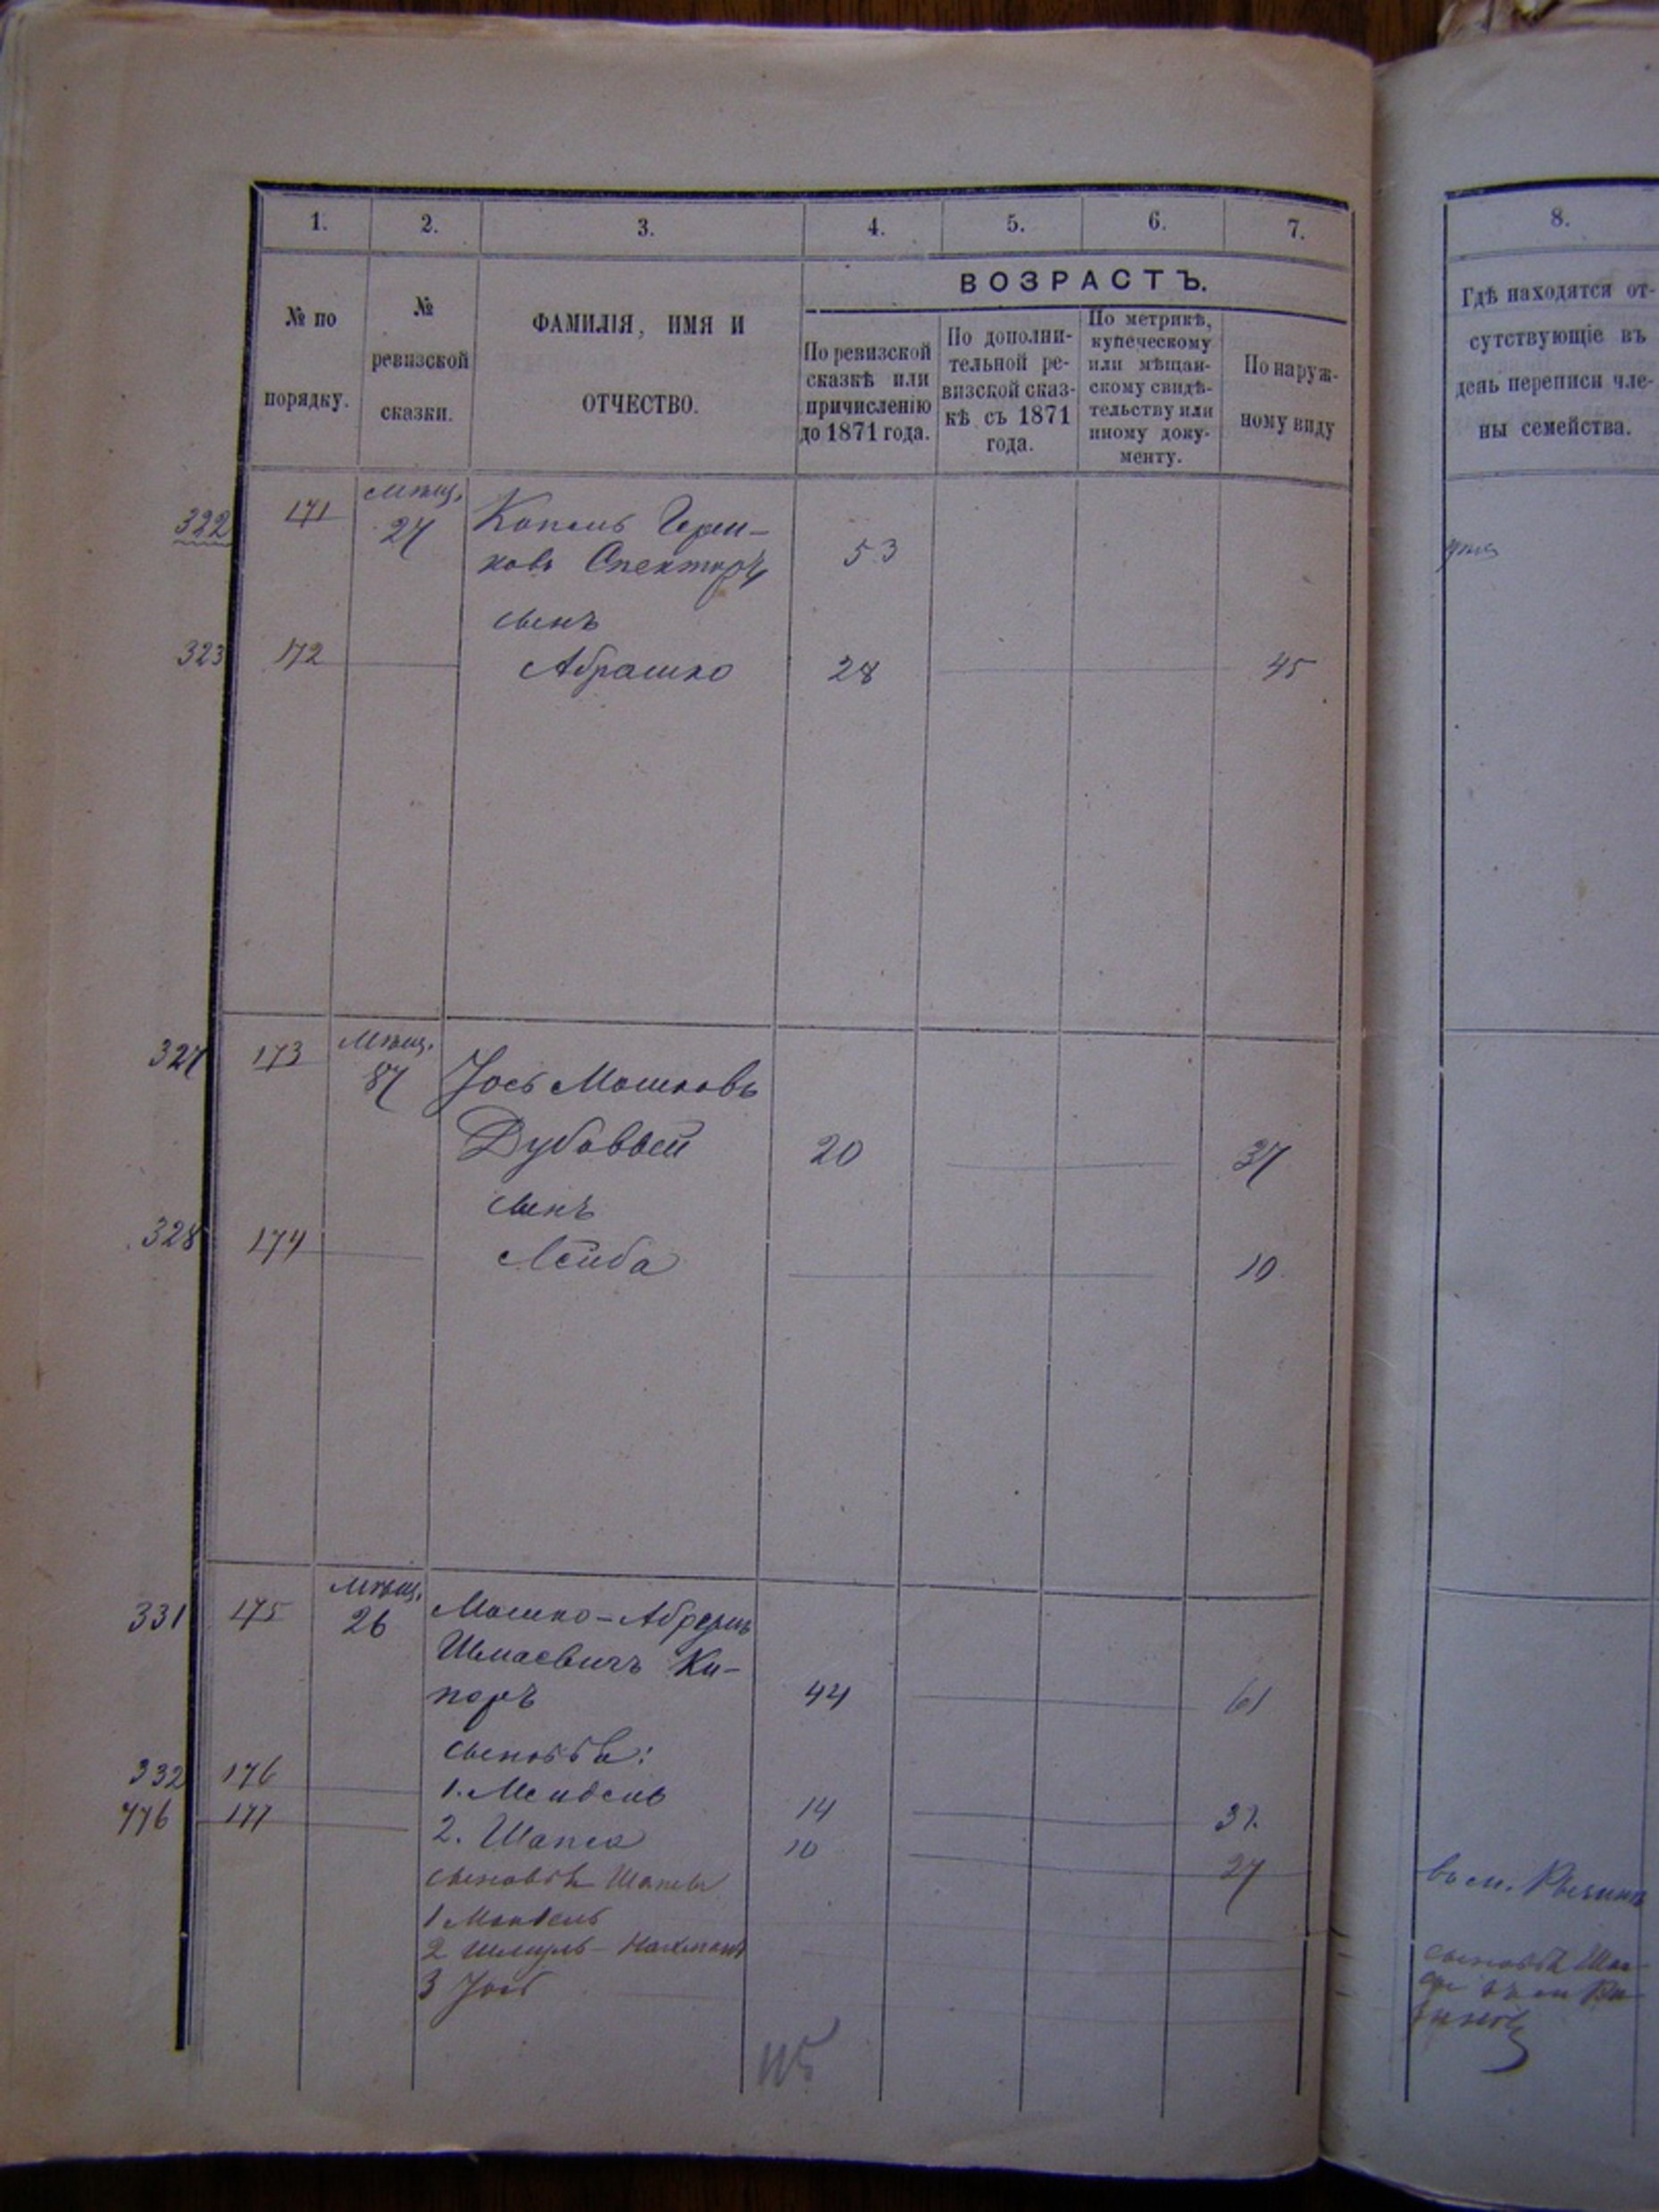 1. 2. 3. 4. 5. 6. 7.
ВОЗРАСТЪ.
№ по
порядку.
№
ревизской
сказки.
ФАМИЛІЯ, ИМЯ И
ОТЧЕСТВО.
По ревизской
сказкѣ или
причисленію
до 1871 года.
По дополни-
тельной ре-
визской сказ-
кѣ съ 1871
года.
По метрикѣ,
купеческому
или мѣщан-
скому свидѣ-
тельству или
иному доку-
менту.
По наруж-
ному виду
322 171 мѣщ. 27 Копель Герш-
ковъ Спекторъ 53
сынъ
323 172 Абрашко 28 45
327 173 мѣщ. 87 Іось Мошковъ
Дубовый 20 37
сынъ
328 174 Лейба 10
331 175 мѣщ. 26 Мошко-Абрумъ
Шмаевичъ Ки-
поръ 44 61
сыновья:
332 176 1. Мендель 14 31.
776 177 2. Шапса 10 27
сыновья Шапсы
1 Мендель
2 Шмуль-Нахманъ
3 Іось
115
8.
Гдѣ находятся от-
сутствующіе въ
день переписи чле-
ны семейства.
въ м.
сыновья Шап-